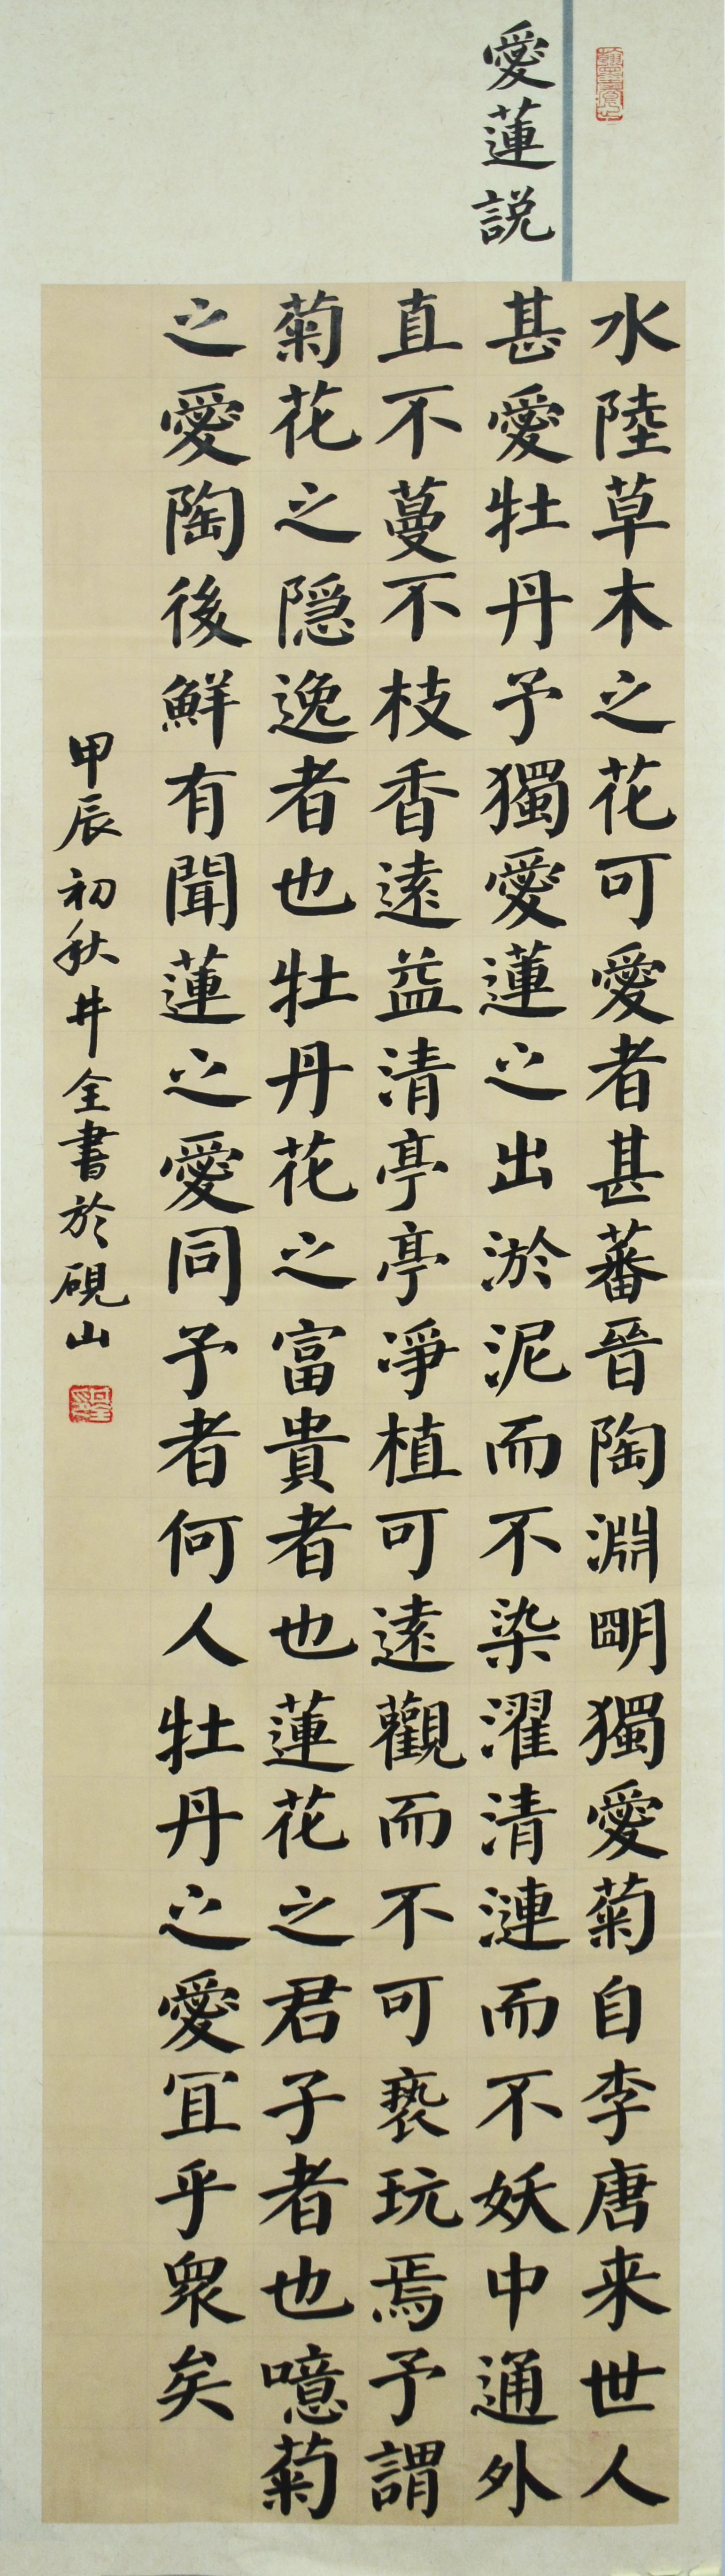 愛蓮説
水陸草木之花可愛者甚蕃晉陶淵朙獨愛菊自李唐来世人
甚愛牡丹予獨愛蓮之出淤泥而不染濯清漣而不妖中通外
直不蔓不枝香遠益清亭亭凈植可遠觀而不可亵玩焉予謂
菊花之隠逸者也牡丹花之富貴者也蓮花之君子者也噫菊
之愛陶後鮮有聞蓮之愛同予者何人牡丹之愛冝乎衆矣
甲辰初秋井全書於硯山